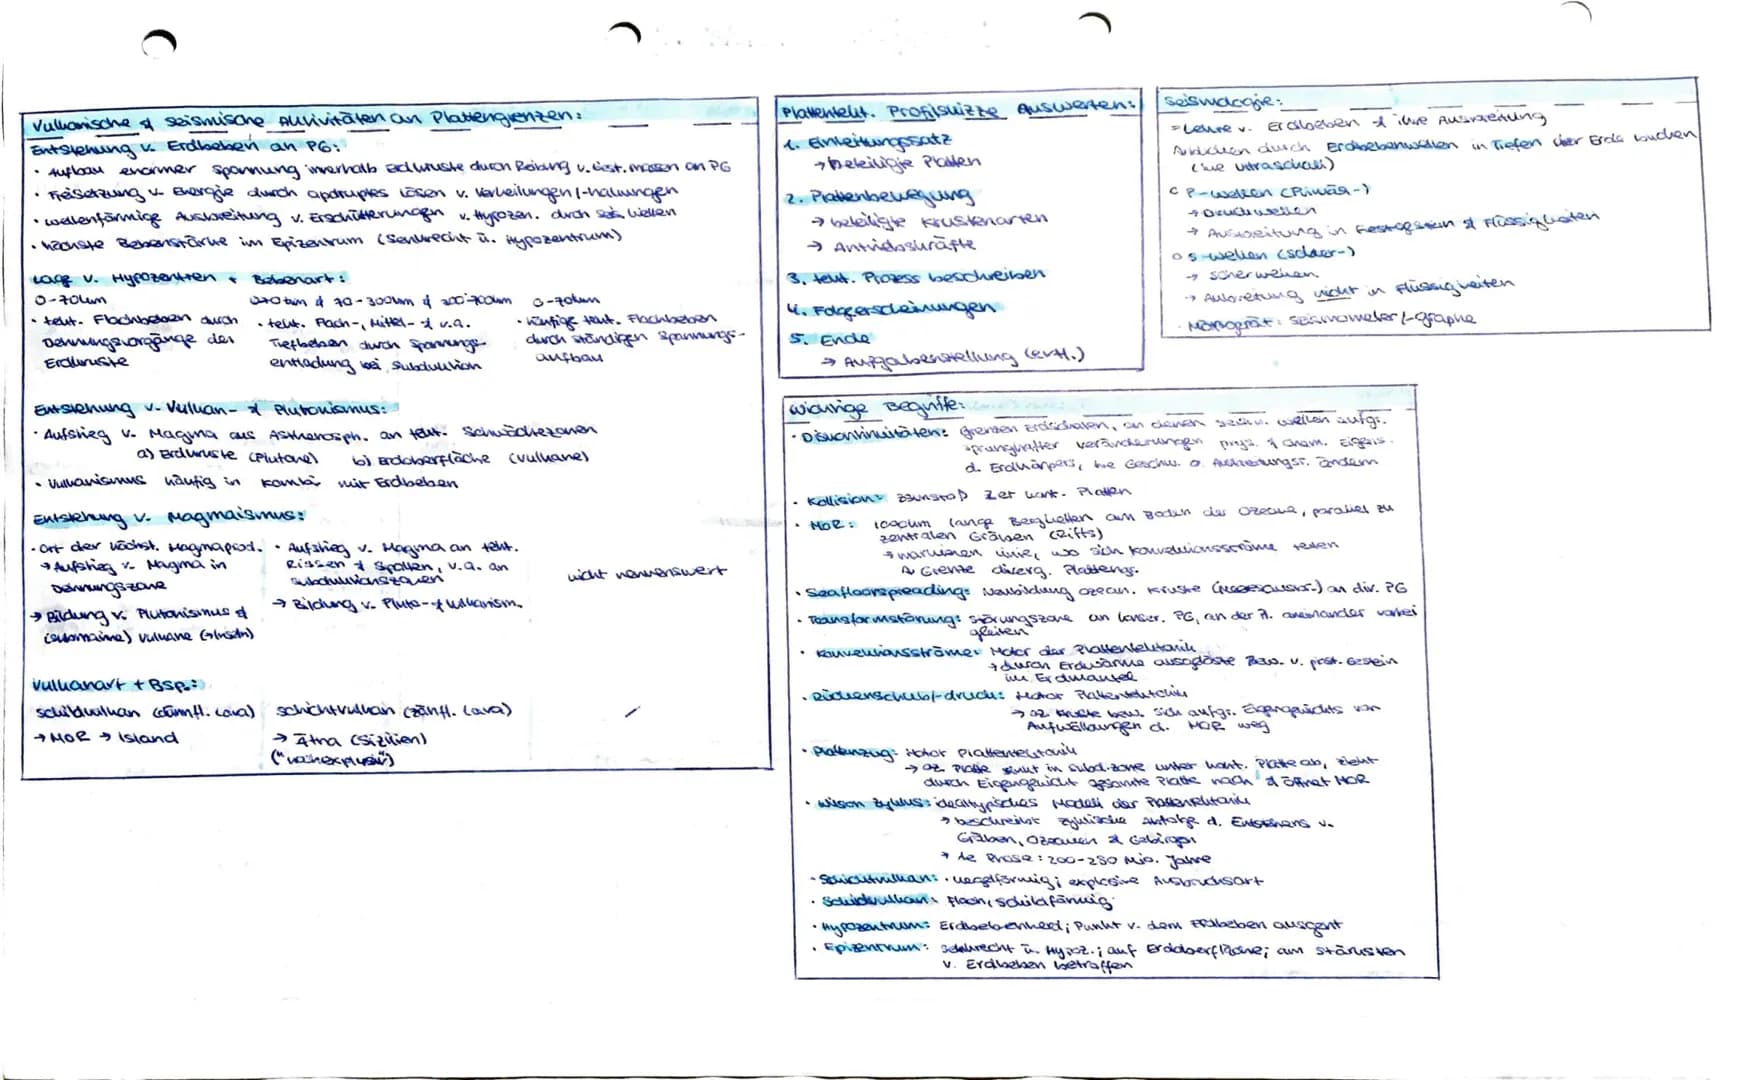 Vulkanische & seismische Aktivitäten an Plattengrenzen:
Entstehung v. Erdbeben an PG:
· Aufbau enormer Spannung innerhalb Erdkruste durch Reibung v. Gest.massen an PG
· Freisetzung v. Energie durch apdruptes Lösen v. Verkeilungen/-hakungen
· wellenförmige Ausbreitung v. Erschütterungen v. Hypozen. durch seis. Wellen
· höchste Bebenstärke im Epizentrum (Senkrecht ü. Hypozentrum)
Lage v. Hypozentren + Bebenart:
0-70km
· tekt. Flachbeben durch
Dehnungsvorgänge der
Erdkruste
& 70-300km & 300-700km
· tekt. Flach-, Mittel- & v.a.
Tiefbeben durch Spannungs-
entladung bei Subduktion
0-70km
· häufige tekt. Flachbeben
durch ständigen Spannungs-
aufbau
Entstehung v. Vulkan- & Plutonismus:
· Aufstieg v. Magma aus Asthenosph. an tekt. Schwächezonen
a) Erdkruste (Plutone) b) Erdoberfläche (Vulkane)
· Vulkanismus häufig in Kombi mit Erdbeben
Entstehung v. Magmaismus:
· Ort der höchst. Magmaprod.
→ Aufstieg v. Magma in
Dehnungszone
→ Bildung v. Plutonismus &
(submarine) Vulkane (Inseln)
· Aufstieg v. Magma an tekt.
Rissen & Spalten, v.a. an
Subduktionszonen
→ Bildung v. Pluto- & Vulkanism.
nicht nennenswert
Vulkanart + Bsp.:
Schildvulkan (dünnfl. Lava)
→ MOR → Island
Schichtvulkan (zähfl. Lava)
→ Ätna (Sizilien)
/
Plattentekt. Profilskizze Auswerten:
1. Einleitungssatz
→ beteiligte Platten
2. Plattenbewegung
→ beteiligte Krustenarten
→ Antriebskräfte
3. tekt. Prozess beschreiben
4. Folgeerscheinungen
5. Ende
→ Aufgabenstellung (evtl.)
Seismologie:
= Lehre v. Erdbeben & ihre Ausbreitung
durch Erdbebenwellen in Tiefen der Erde
(wie Ultraschall)
○ P-Wellen (Primär-)
→ Druckwellen
→ Ausbreitung in Festgestein & Flüssigkeiten
○ S-Wellen
→ Scherwellen
→ Ausbreitung nicht in Flüssigkeiten
· Messgerät: Seismometer/-graphe
Wichtige Begriffe:
· Diskontinuitäten: Grenzen Erdschalen, an denen seism. Wellen aufgr.
sprunghafter Veränderungen phys. & chem. Eigens.
d. Erdkörpers, ihre Geschw. o. Ausbreitungsr. ändern
· Kollision: Zsmstoß 2er kont. Platten
· MOR: 1000km lange Bergketten am Boden der Ozeane, parallel zu
zentralen Gräben (Rifts)
→ markieren Linie, wo sich Konvektionsströme teilen
Grenze diverg. Plattengr.
· Seafloorspreading: Neubildung ozean. Kruste an div. PG
· Transformstörung: Störungszone an konser. PG, an der Pl. aneinander vorbei
gleiten
· Konvektionsströme: Motor der Plattentektonik
→ durch Erdwärme ausgelöste Bew. v. plast. Gestein
im Erdmantel
· Rückenschub/-druck: Motor Plattentektonik
→ oz. Kruste bew. sich aufgr. Eigengewichts von
Aufwölbungen d. MOR weg
· Plattenzug: Motor Plattentektonik
→ oz. Platte sinkt in Subd.zone unter kont. Platte ab, zieht
durch Eigengewicht gesamte Platte nach & öffnet MOR
· Wilson Zyklus: idealtypisches Modell der Plattentektonik
→ beschreibt zyklische Abfolge d. Entstehens v.
Gräben, Ozeanen & Gebirgen
→ 1e Phase: 200-250 Mio. Jahre
· Schichtvulkan: · kegelförmig; explosive Ausbruchsart
· Schildvulkan: Flach, schildförmig
· Hypozentrum: Erdbebenherd; Punkt v. dem Erdbeben ausgeht
· Epizentrum: Senkrecht ü. Hypoz.; auf Erdoberfläche; am stärksten
v. Erdbeben betroffen